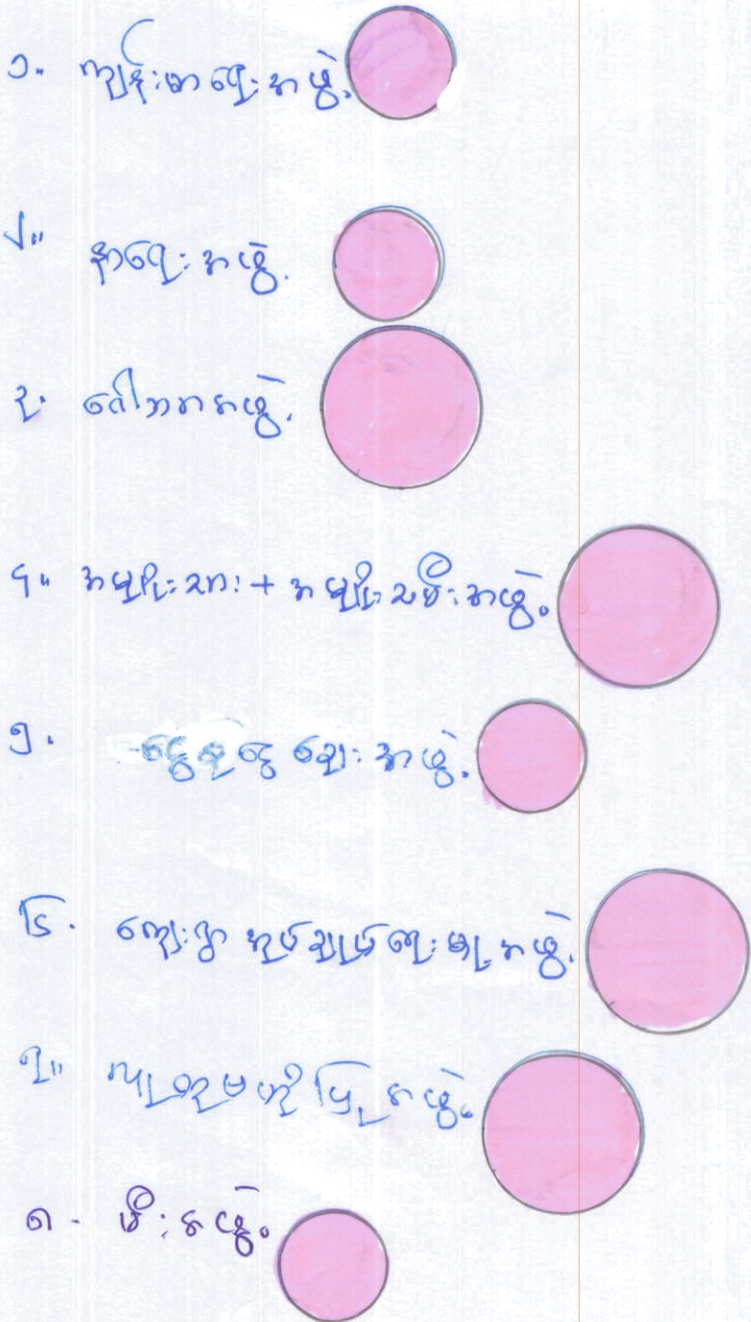 ၁။ ကျန်းမာရေးအဖွဲ့
၂။ နာရေးအဖွဲ့
၃။ ဂေါပကအဖွဲ့
၄။ အမျိုးသား + အမျိုးသမီးအဖွဲ့
၅။ ငွေစုငွေချေးအဖွဲ့
၆။ ကျေးရွာအုပ်ချုပ်ရေးမှူးအဖွဲ့
၇။ ဗဟိုပြုအဖွဲ့
၈။ မီးအဖွဲ့